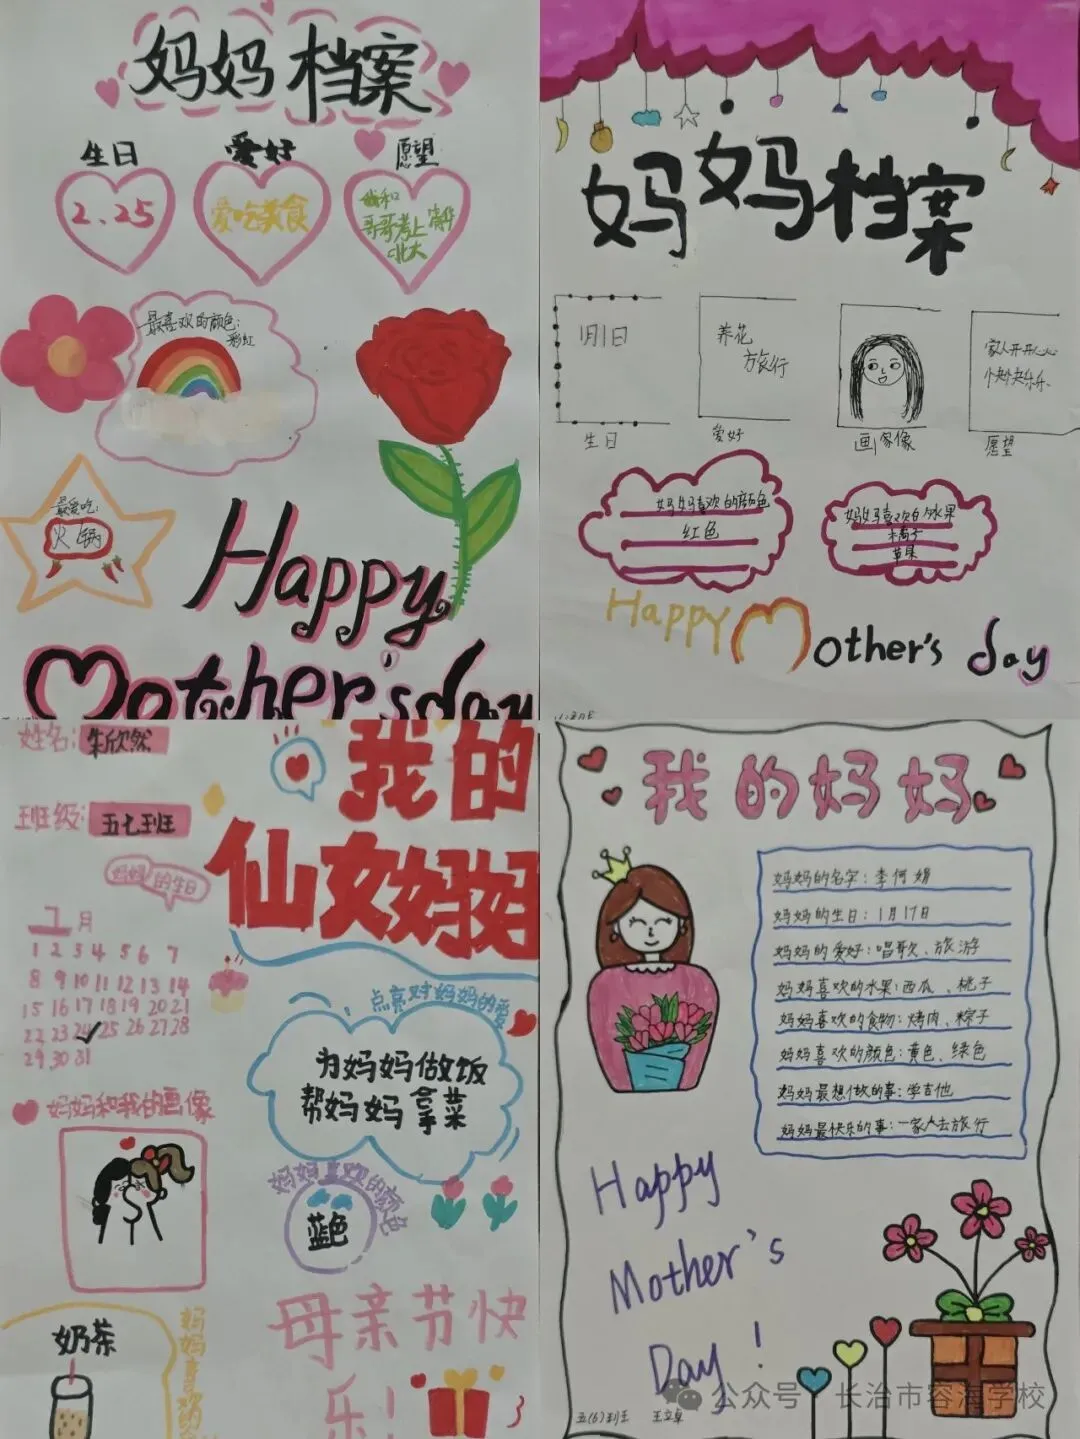 妈妈档案
生日
爱好
愿望
2.25
爱吃美食
我和
哥哥考上清华
北大
最喜欢的颜色:
彩虹
最爱吃:
火锅
Happy
Mother's day
妈妈档案
1月1日
养花
旅行
家人开开心心
快快乐乐
生日
爱好
画家像
愿望
妈妈喜欢的颜色
红色
妈妈喜欢的水果
橘子
苹果
Happy Mother's day
姓名:
班级: 五七班
我的
仙女妈妈
妈妈的生日
月
1 2 3 4 5 6 7
8 9 10 11 12 13 14
15 16 17 18 19 20 21
22 23 24 25 26 27 28
29 30 31
点亮对妈妈的爱
为妈妈做饭
帮妈妈拿菜
妈妈和我的画像
妈妈喜欢的颜色
蓝色
奶茶
妈妈喜欢的
母亲节快
乐!
我的妈妈
妈妈的名字:李何娟
妈妈的生日:1月17日
妈妈的爱好:唱歌、旅游
妈妈喜欢的水果:西瓜、桃子
妈妈喜欢的食物:烤肉、粽子
妈妈喜欢的颜色:黄色、绿色
妈妈最想做的事:学吉他
妈妈最快乐的事:一家人去旅行
Happy
Mother's
Day!
五(6)班 王立卓
公众号·长治市容海学校